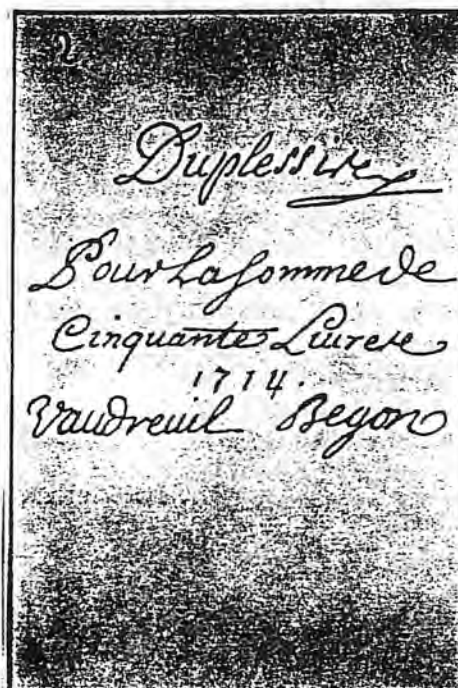 2
Duplessis
Pour La somme de
Cinquante Liures
1714.
Vaudreuil Begon